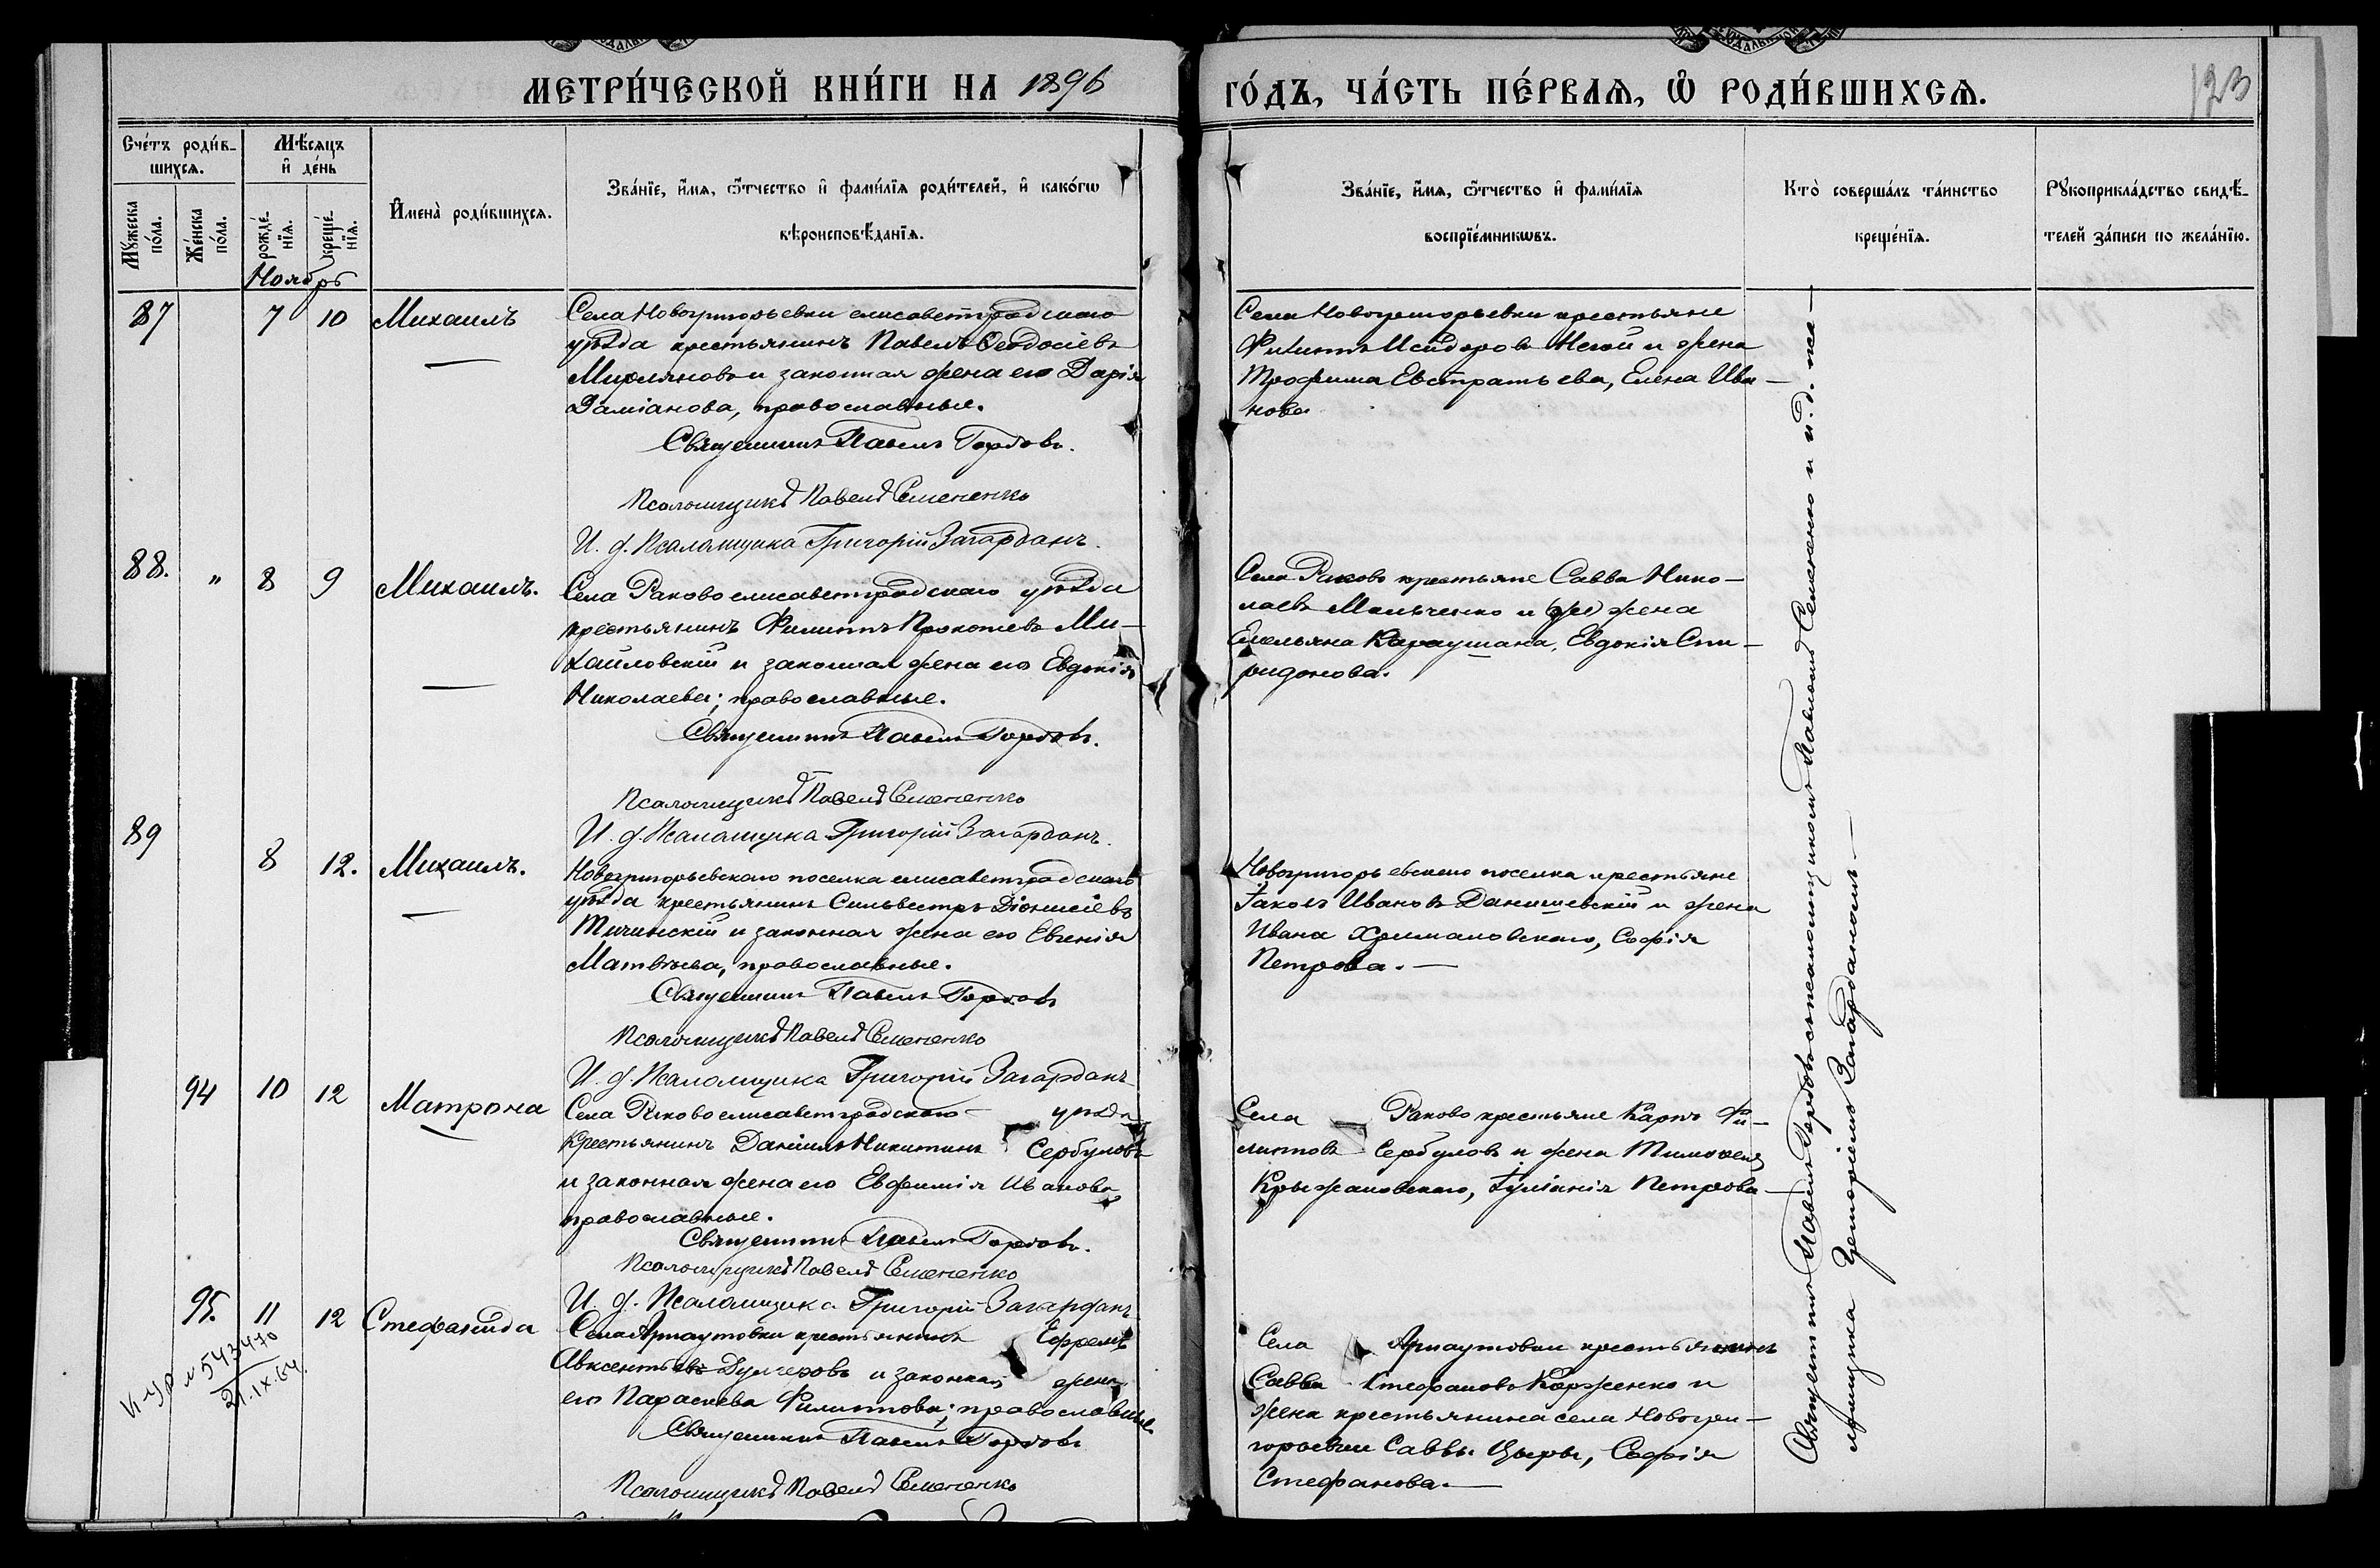 МЕТРИ́ЧЕСКОЙ КНИ́ГИ НА 1896
ГО́ДЪ, ЧА́СТЬ ПЕ́РВАЯ, Ѽ РОДИ́ВШИХСЯ.
123
Сче́тъ роди́в-
шихся.
Мѣ́сяцъ
и҆ де́нь
Мꙋ́жеска
по́ла.
Же́нска
по́ла.
рожде́-
нїя.
креще́-
нїя.
И҆мена̀ роди́вшихся.
Зва́нїе, и҆́мя, ѻ҆́тчество и҆ фами́лїя роди́телей, и҆ како́гѡ
вѣроисповѣ́данїя.
Зва́нїе, и҆́мя, ѻ҆́тчество и҆ фами́лїя
воспрїе́мникѡвъ.
Кто̀ соверша́лъ та́инство
креще́нїя.
Рꙋкоприкла́дство свидѣ́-
телей за́писи по жела́нїю.
Ноябрь
87 7 10 Михаилъ
Села Новогригорьевки елисаветградскаго
уѣзда крестьянинъ Павелъ Ѳеодосіевъ
и законная жена его Дарія
Даміанова, православные.
Священникъ Павелъ
Псаломщикъ Павелъ Семененко
И. д. Псаломщика Григорій Загарданъ.
Села Новогригорьевки крестьяне
Филиппъ Исидоровъ и жена
Трофима Евстратьева, Елена Ива-
нова
88. " 8 9 Михаилъ.
Села Раково елисаветградскаго уѣзда
крестьянинъ Филиппъ Прокопіевъ Ми-
хайловскій и законная жена его Евдокія
Николаева; православные.
Священникъ Павелъ
Псаломщикъ Павелъ Семененко
И. д. Псаломщика Григорій Загарданъ.
Села Раково крестьяне Савва Нико-
лаевъ Мельченко и жена
Емельяна Караушана, Евдокія Спи-
ридонова.
89 8 12. Михаилъ.
Новогригорьевскаго поселка елисаветградскаго
уѣзда крестьянинъ Сильвестръ Діонисіевъ
Тичинскій и законная жена его Евгенія
Матвѣева, православные.
Священникъ Павелъ
Псаломщикъ Павелъ Семененко
И. д. Псаломщика Григорій Загарданъ
Новогригорьевскаго поселка крестьяне
Іаковъ Ивановъ Данишевскій и жена
Ивана Хримановскаго, Софія
Петрова.—
94 10 12 Матрона
Села Раково елисаветградскаго уѣзда
крестьянинъ Даніилъ Никитинъ Сербуловъ
и законная жена его Евфимія Иванова,
православные.
Священникъ Павелъ
Псаломщикъ Павелъ Семененко
И. д. Псаломщика Григорій Загарданъ
Села Раково крестьяне Карпъ Фи-
липповъ Сербуловъ и жена Тимоѳея
Крыжановскаго, Іуліанія Петрова
95. 11 12 Стефанида
Села Арнаутовки крестьянинъ Ефремъ
Авксентьевъ и законная жена
его Параскева Филиппова; православные.
Священникъ Павелъ
Псаломщикъ Павелъ Семененко
Села Арнаутовки крестьянинъ
Савва Стефановъ Корженко и
жена крестьянина села Новогри-
горьевки Саввы Цыры, Софія
Стефанова.—
21.IX.64.
Священникъ Павелъ съ псаломщикомъ Павломъ Семененко и и. д. пса-
ломщика Григоріемъ Загарданомъ.—